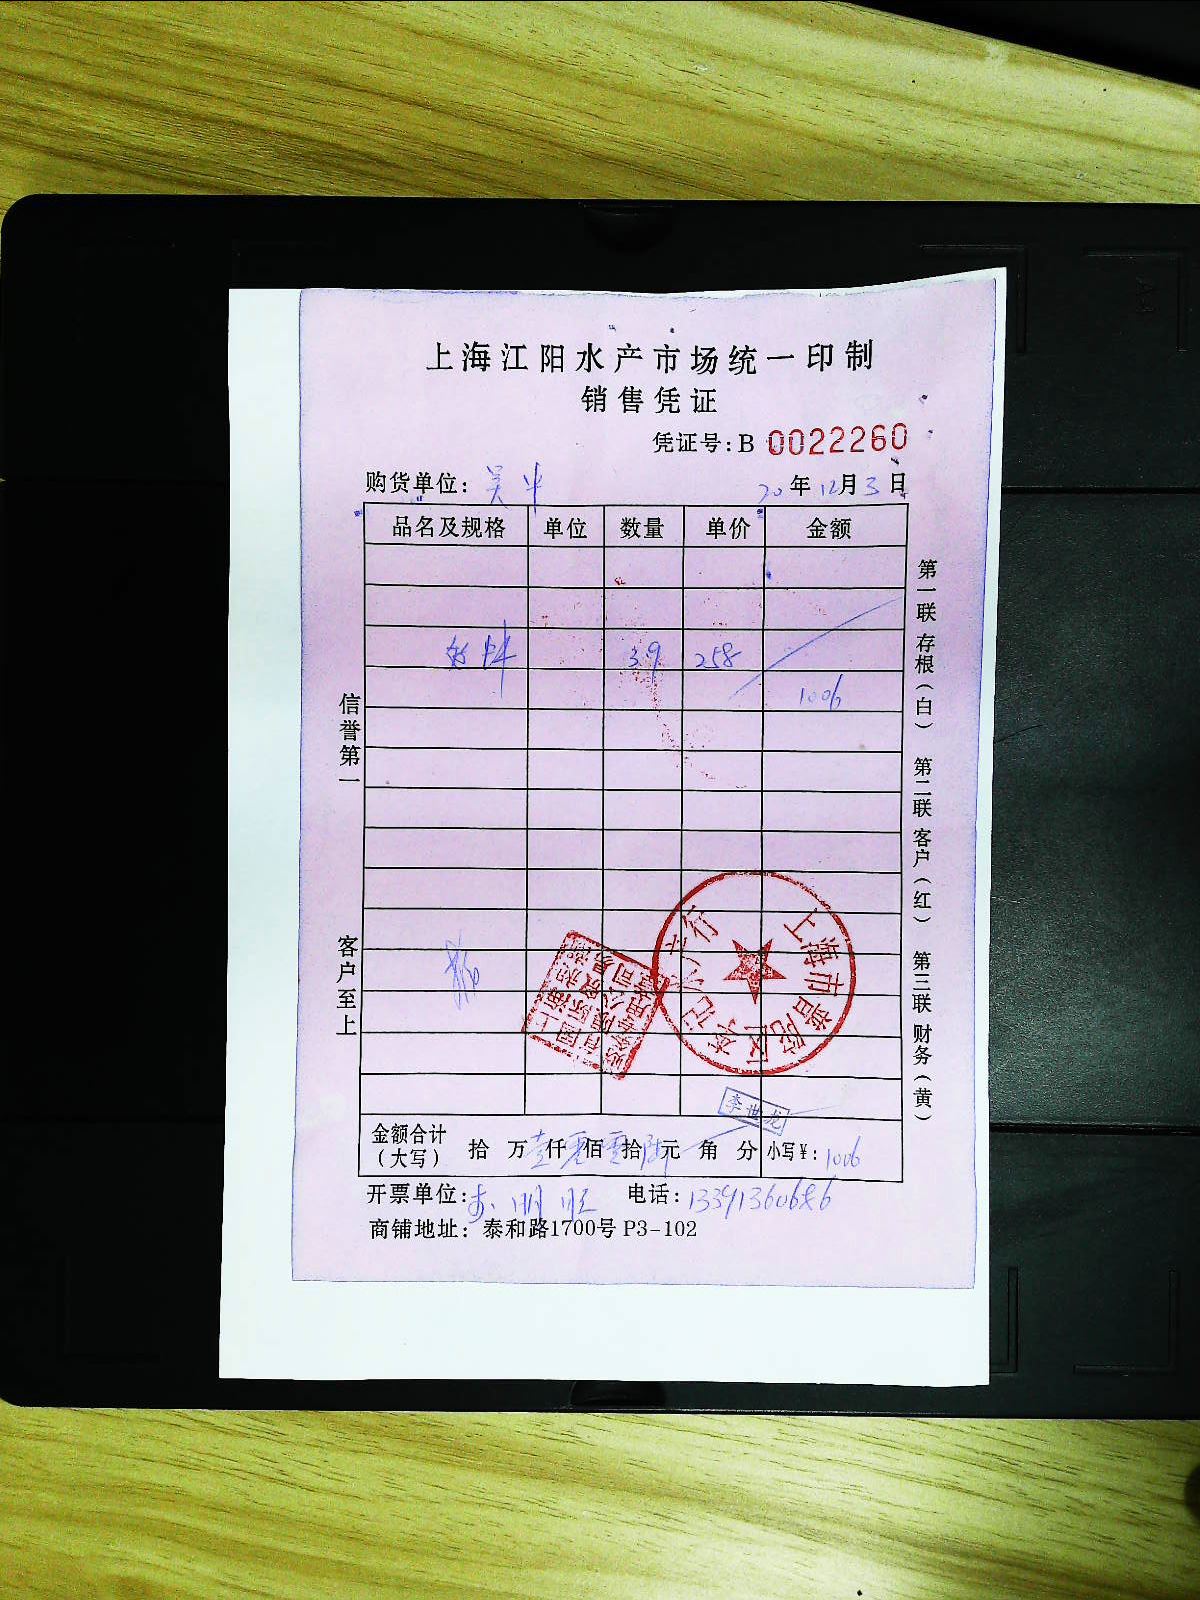 上海江阳水产市场统一印制
销售凭证
凭证号:B 0022260
购货单位:
20年12月3日
品名及规格 单位 数量 单价 金额
3.9 258
1006
信誉第一
客户至上
第一联 存根(白) 第二联 客户(红) 第三联 财务(黄)
上海市普陀区李记水产行
李世龙
金额合计(大写) 拾 万 壹 仟 零 佰 零 拾 陆 元 角 分 小写¥: 1006
开票单位: 电话:
商铺地址: 泰和路1700号 P3-102